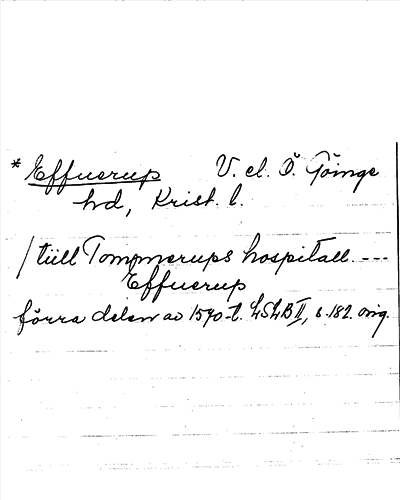 * Effuerup V. el. Ö. Göinge
hd, Krist. l.
/ tiill Tommerups hospitall. ---
Effuerup
förra delen av 1570-t. LSLB II, s. 182. orig.